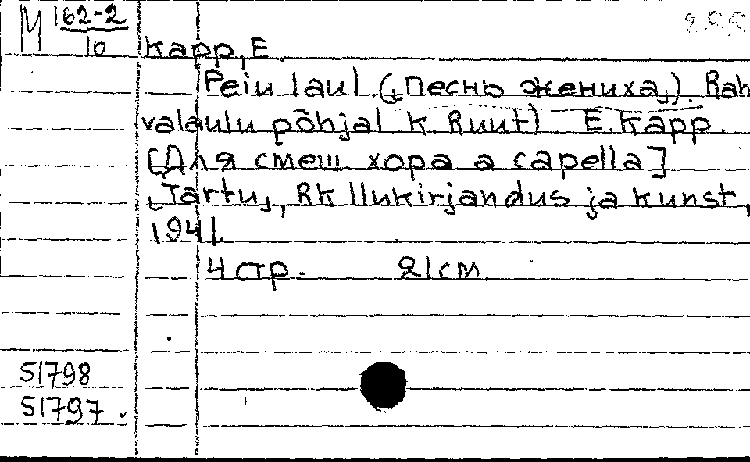 М 162-2
10
Kapp, E.
Peiu laul („Песнь жениха„) Rah
valaulu põhjal K. Ruut) E. Kapp.
[Для смеш хора a capella]
„Tartu„, RK Ilukirjandus ja kunst,
1941.
4 стр. 21 см
51798
51797.